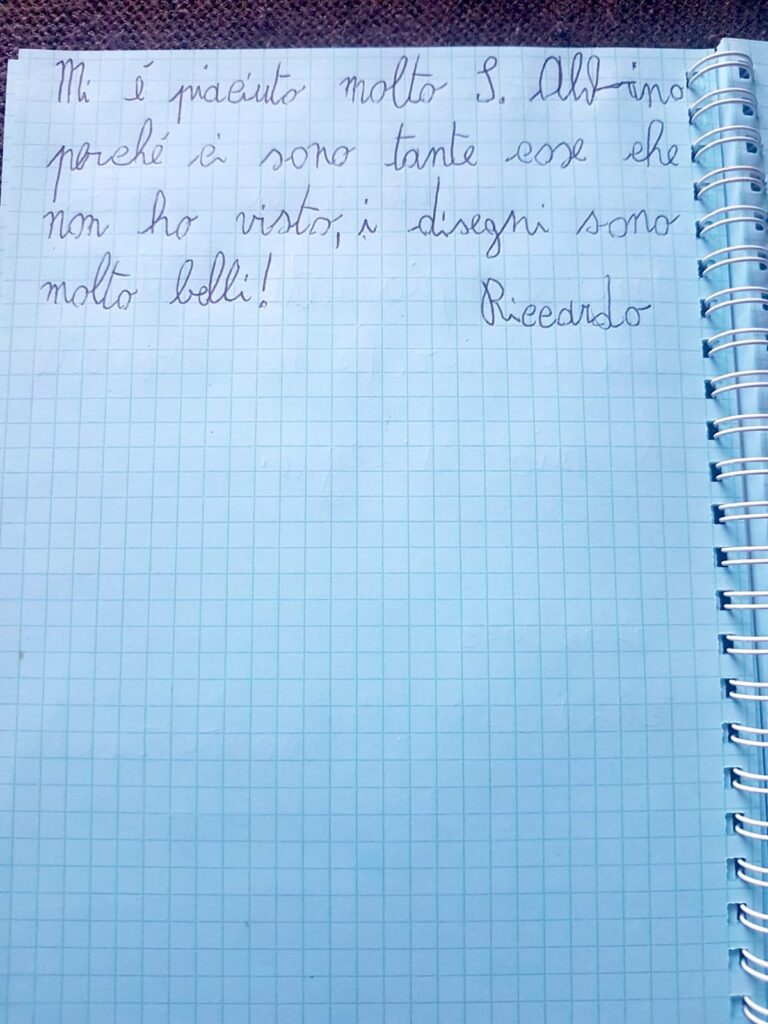 Mi é piaciuto molto S. Albino
perché ci sono tante cose che
non ho visto, i disegni sono
molto belli!
Riccardo